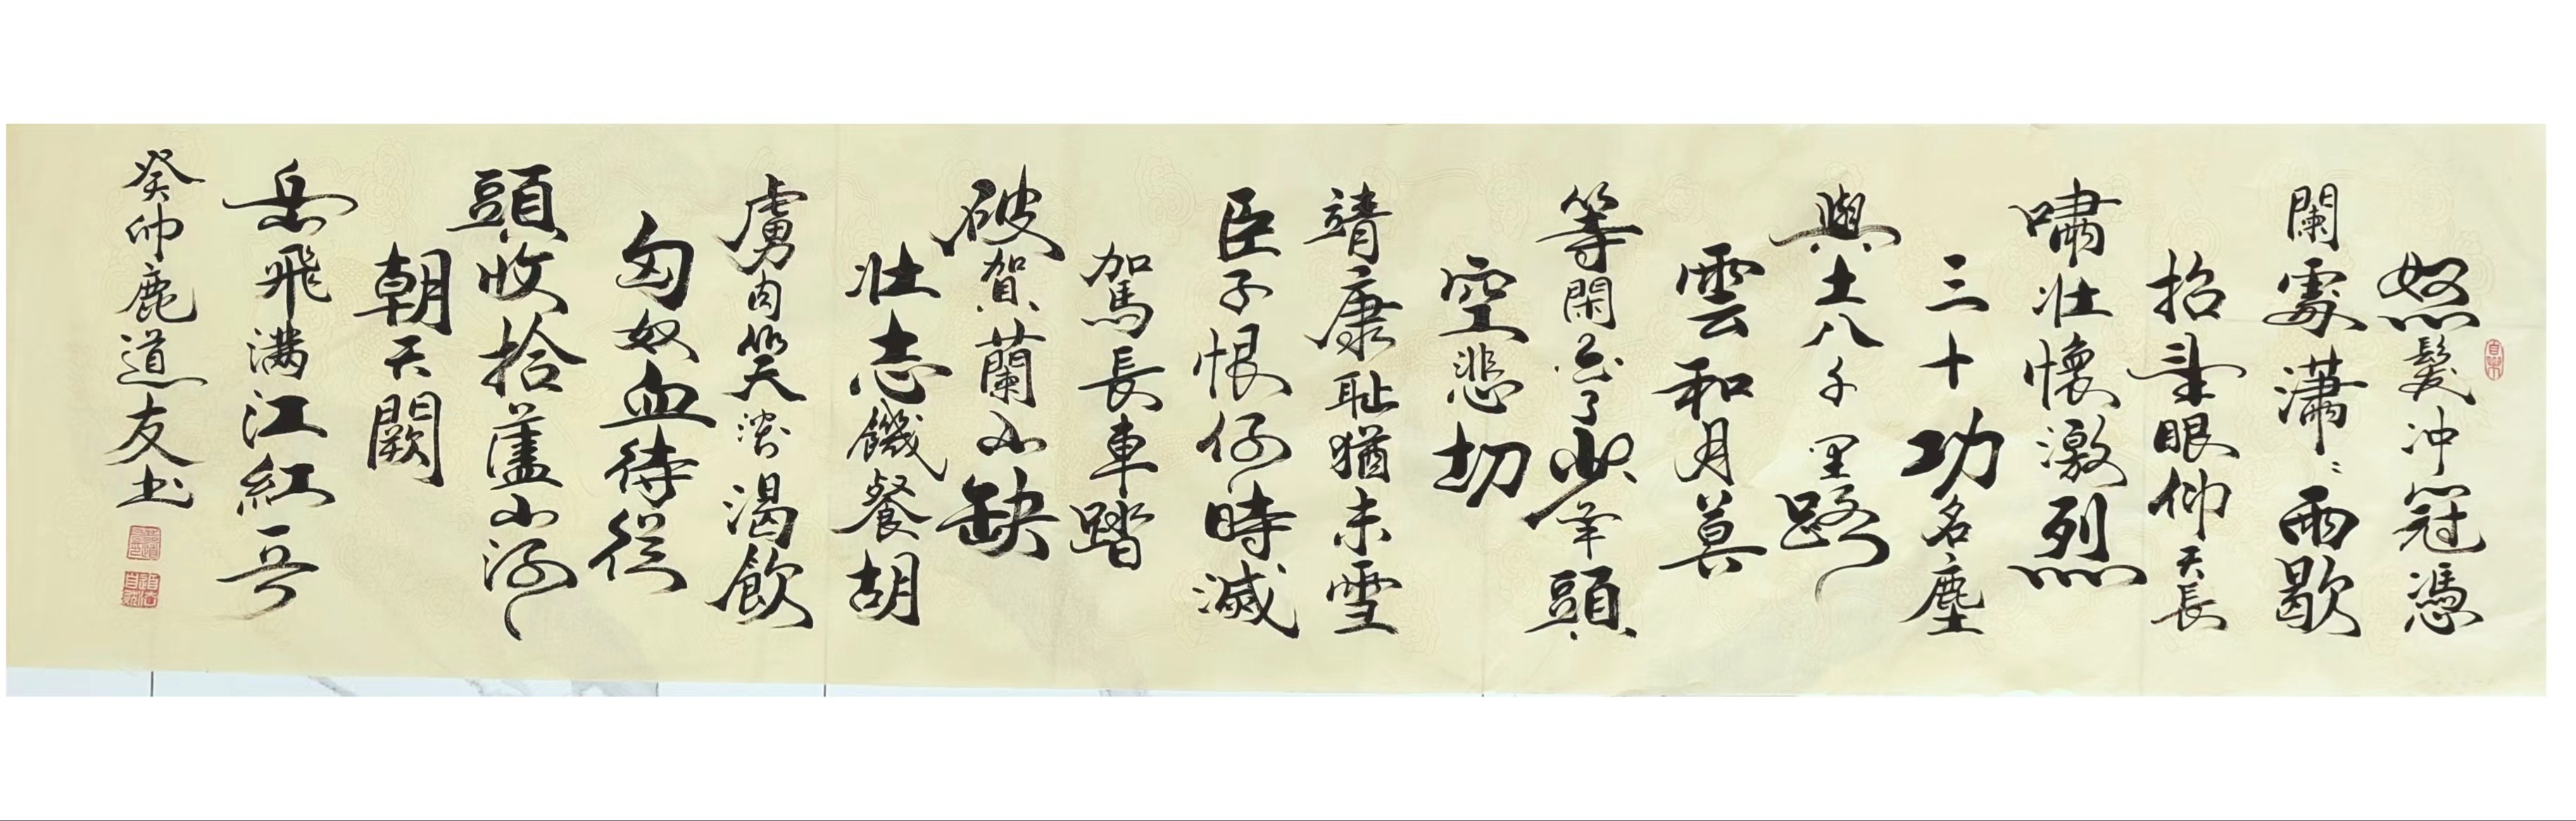 怒髮冲冠憑
闌處瀟〻雨歇
招望眼仰天長
嘯壯懷激烈
三十功名塵
與土八千里路
雲和月莫
等閑白了少年頭
空悲切
靖康耻猶未雪
臣子恨何時滅
駕長車踏
破賀蘭山缺
壯志饑餐胡
虜肉笑談渴飲
匈奴血待從
頭收拾舊山河
朝天闕
岳飛满江紅哥
癸卯鹿道友书